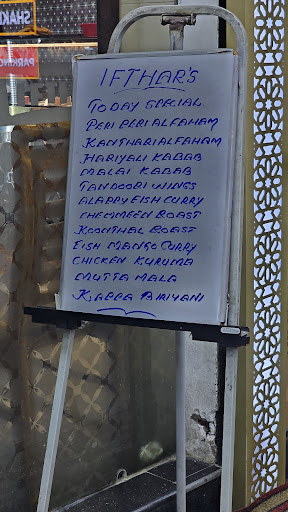 SHAK
PARKING
IFTHAR'S
TODAY SPECIAL
PERI PERI ALFAHAM
KANTHARI ALFAHAM
HARIYALI KABAB
MALAI KABAB
TANDOORI WINGS
ALAPPY FISH CURRY
CHEMMEEN ROAST
KOONTHAL ROAST
FISH MANGO CURRY
CHICKEN KURUMA
MUTTA MALA
KAPPA BIRIYANI